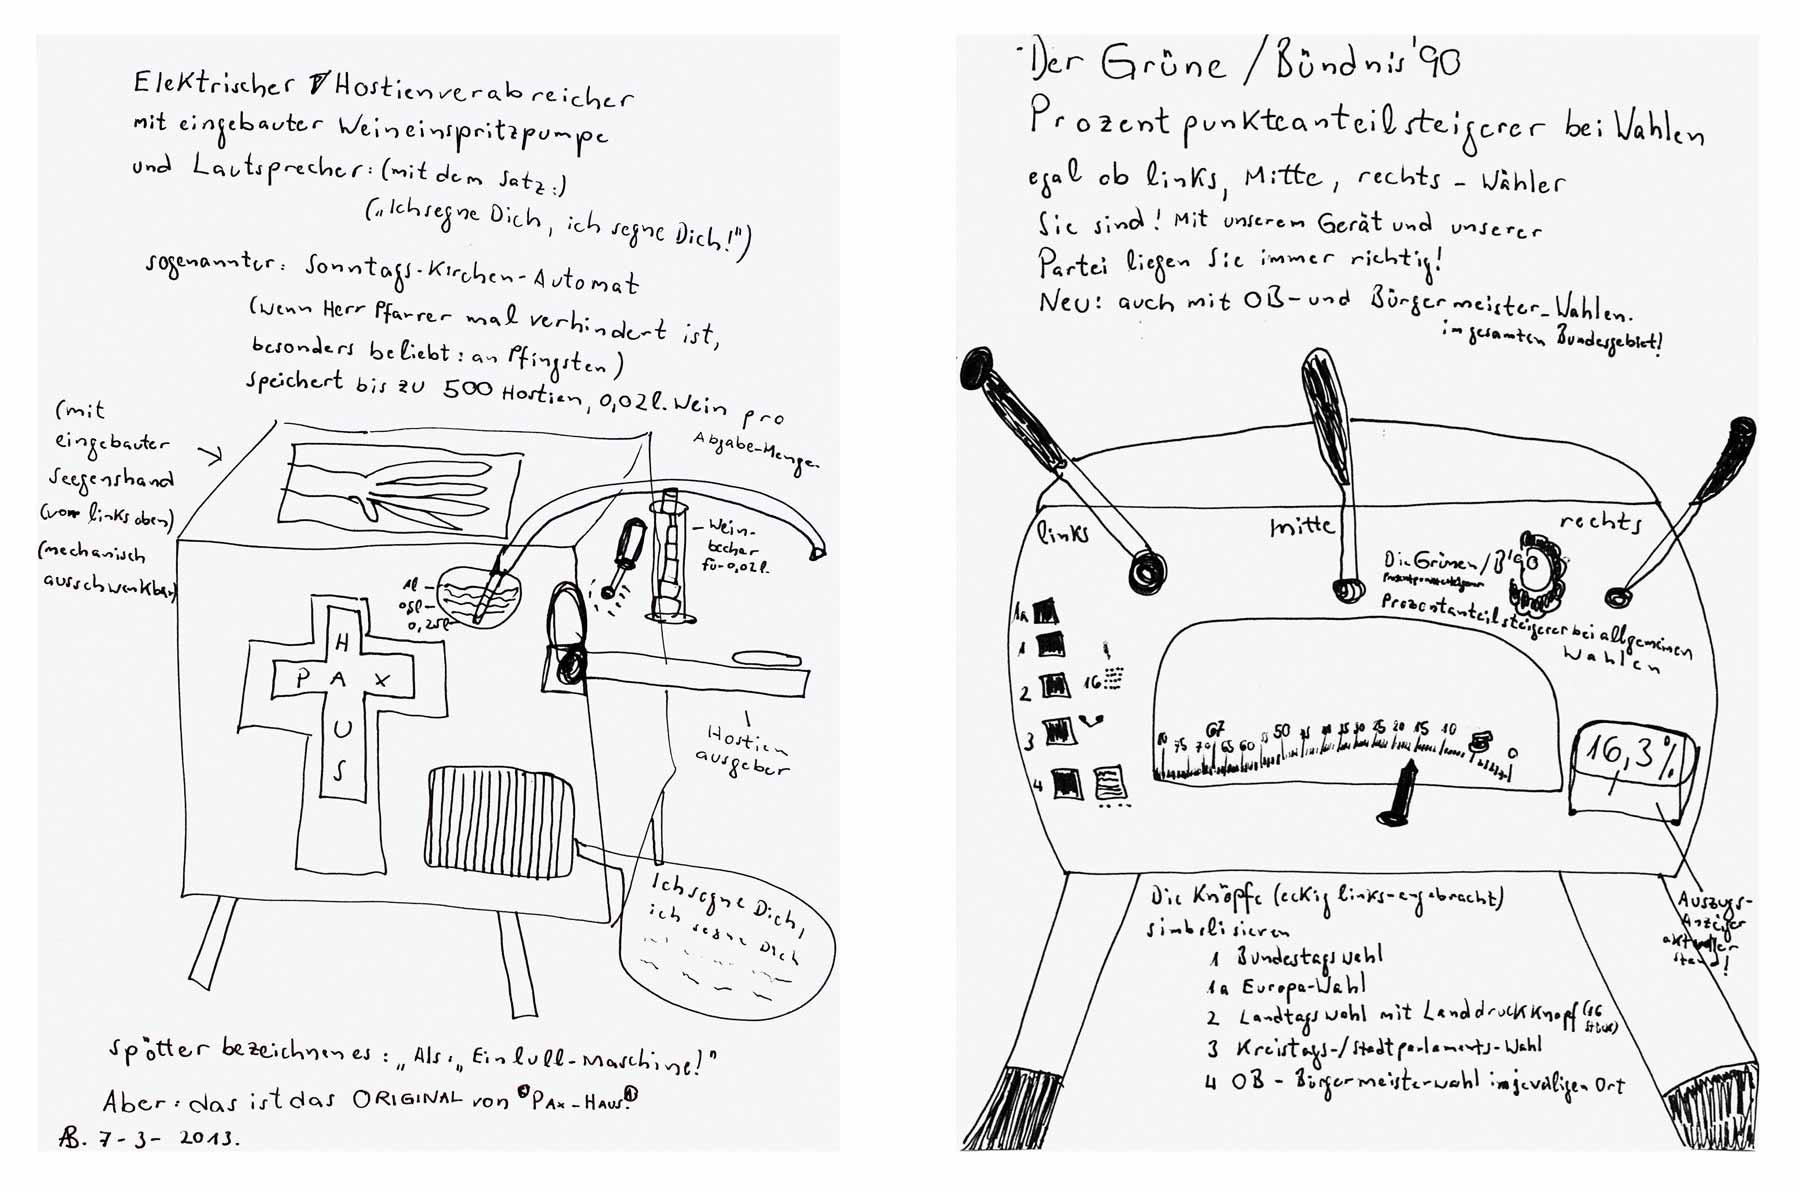 Elektrischer Hostienverabreicher
mit eingebauter Weineinspritzpumpe
und Lautsprecher: (mit dem Satz:)
("Ich segne Dich, ich segne Dich!")
sogenannter: Sonntags-Kirchen-Automat
(wenn Herr Pfarrer mal verhindert ist,
besonders beliebt: an Pfingsten)
speichert bis zu 500 Hostien, 0,02l. Wein pro
Abgabe-Menge.
(mit
eingebauter
Seegenshand
(von links oben)
(mechanisch
ausschwenkbar)
Wein-
becher
für 0,02l.
1l
0,5l
0,25l
H
P A X
U
S
Hostien
ausgeber
Ich segne Dich,
ich segne Dich
Spötter bezeichnen es: „Als: „Einlull-Maschine!"
Aber: das ist das ORIGINAL von "PAX-HAUS!"
AB. 7-3-2013.
Der Grüne/Bündnis'90
Prozentpunkteanteilsteigerer bei Wahlen
egal ob links, Mitte, rechts-Wähler
Sie sind! Mit unserem Gerät und unserer
Partei liegen Sie immer richtig!
Neu: auch mit OB- und Bürgermeister-Wahlen.
im gesamten Bundesgebiet!
links
mitte
rechts
Die Grünen/B'90
Prozentanteilsteigerer bei allgemeinen
Wahlen
1a
1
2
16
3
4
80 75 70 67 65 60 55 50 45 40 35 30 25 20 15 10 5 0
16,3%
Auszugs-
Anzeiger
aktueller
Stand!
Die Knöpfe (eckig links-angebracht)
simbolisieren
1 Bundestagswahl
1a Europa-Wahl
2 Landtagswahl mit Landdruckknopf (16
Stück)
3 Kreistags-/Stadtparlaments-Wahl
4 OB - Bürgermeisterwahl im jeweiligen Ort